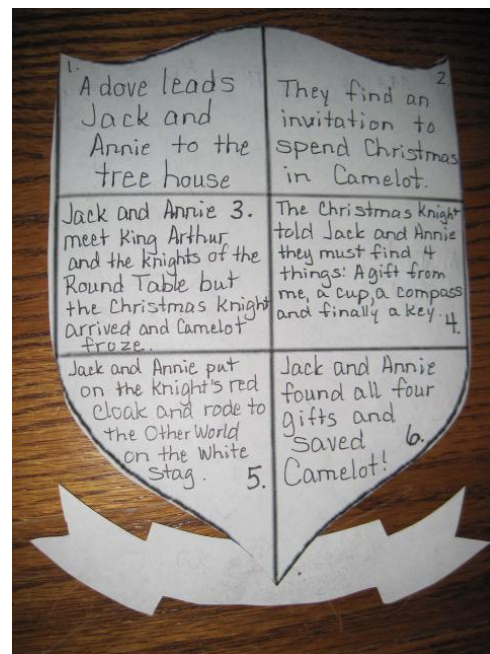 1.
A dove leads
Jack and
Annie to the
tree house
2.
They find an
invitation to
spend Christmas
in Camelot.
Jack and Annie 3.
meet King Arthur
and the knights of the
Round Table but
the Christmas knight
arrived and Camelot
froze.
The Christmas knight
told Jack and Annie
they must find 4
things: A gift from
me, a cup, a compass
and finally a key.
4.
Jack and Annie put
on the knight's red
cloak and rode to
the Other World
on the white
stag. 5.
Jack and Annie
found all four
gifts and
saved 6.
Camelot!